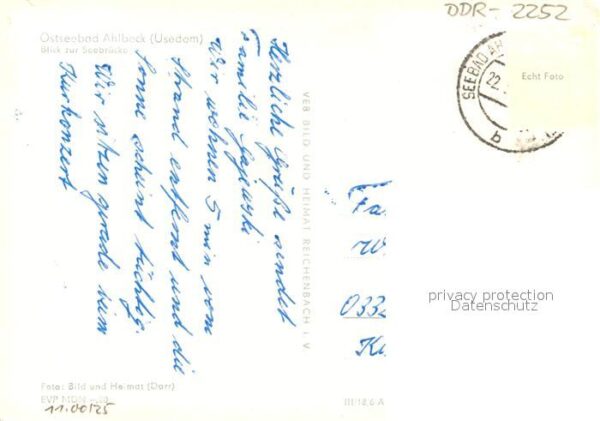 DDR-2252
Ostseebad Ahlbeck (Usedom)
Blick zur Seebrücke
SEEBAD AH
22.
b
Echt Foto
Herzliche Grüße sendet
Familie Gajewski
Wir wohnen 5 min vom
Strand entfernt und die
Sonne scheint tüchtig.
Wir sitzen gerade beim
Kurkonzert
VEB BILD UND HEIMAT REICHENBACH i. V.
Fa
W.
033
K
privacy protection
Datenschutz
Foto: Bild und Heimat (Darr)
EVP MDN
III/18/6 A
11.00125